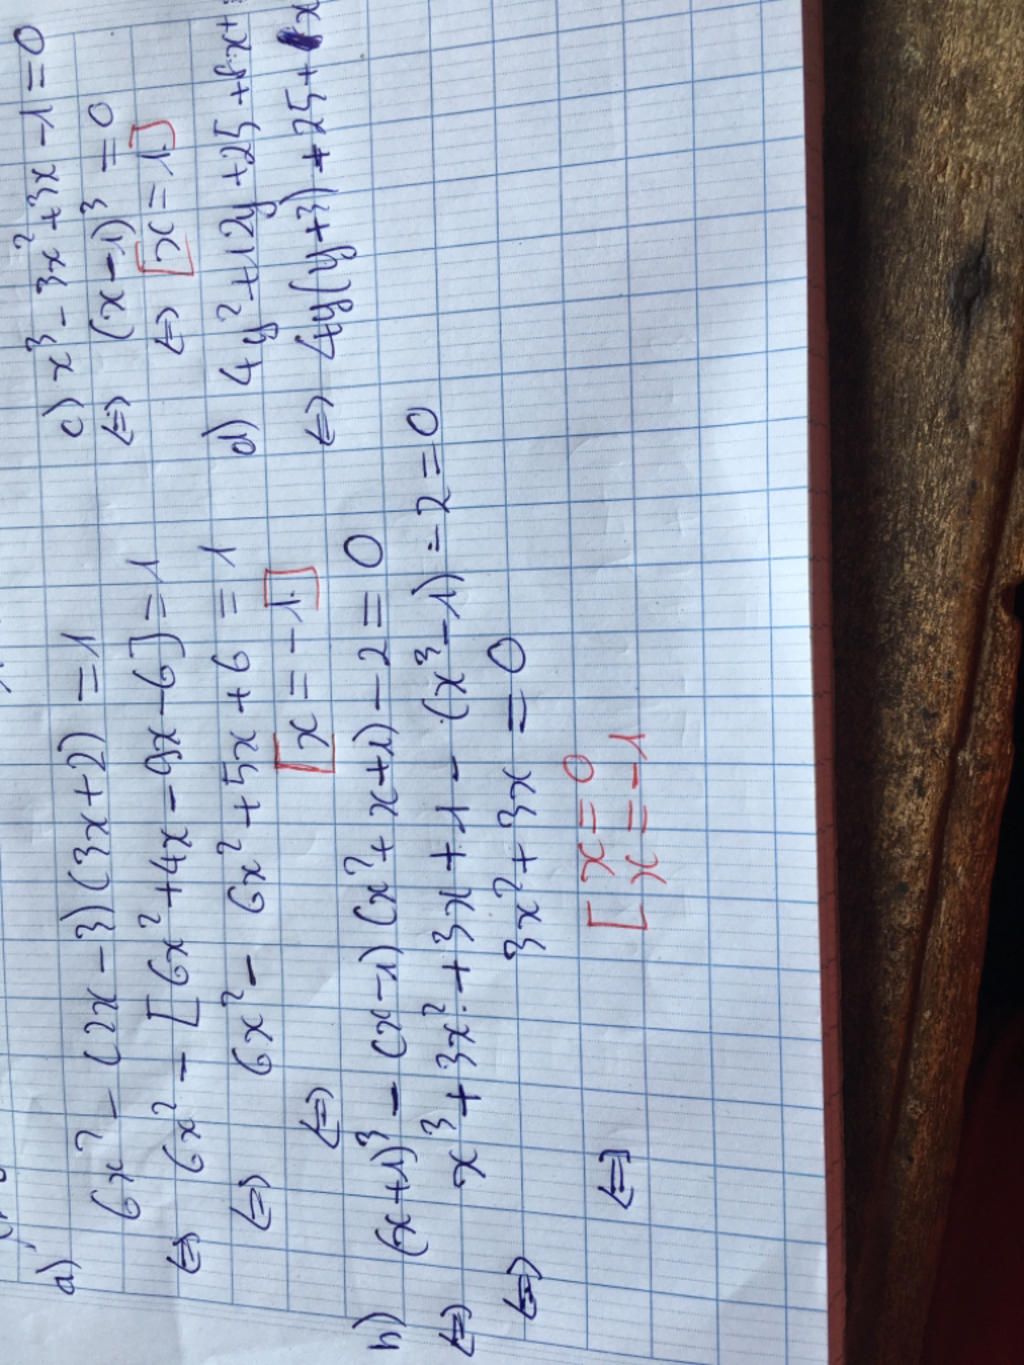 a) 6x² - (2x - 3)(3x + 2) = 1
⇔ 6x² - [6x² + 4x - 9x - 6] = 1
⇔ 6x² - 6x² + 5x + 6 = 1
⇔ [x = -1.]
b) (x + 1)³ - (x - 1)(x² + x + 1) - 2 = 0
⇔ x³ + 3x² + 3x + 1 - (x³ - 1) - 2 = 0
⇔ 3x² + 3x = 0
⇔ [ x = 0
x = -1
c) x³ - 3x² + 3x - 1 = 0
⇔ (x - 1)³ = 0
⇔ [x = 1.]
d) 4y² + 12y + 25 +
⇔ 4y(y + 3) + 25 +